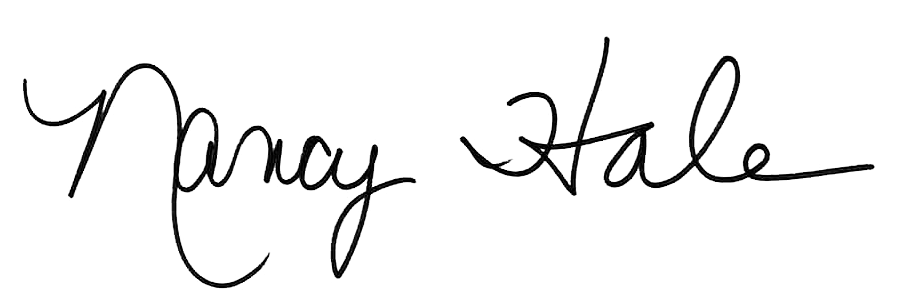 Nancy Hale